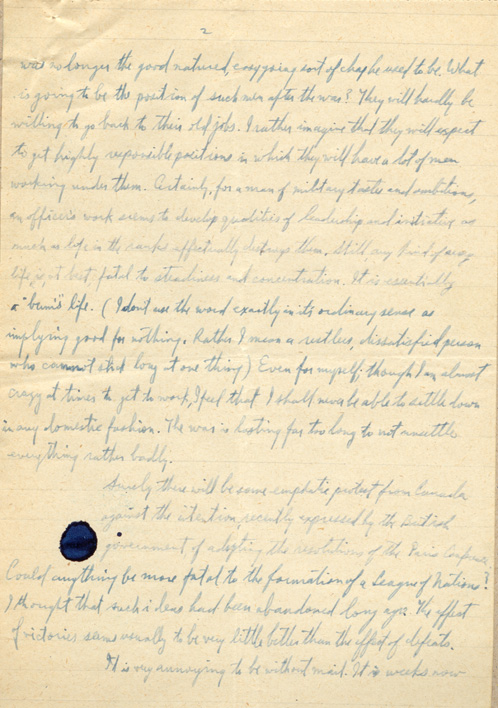 2
was no longer the good natured, easy going sort of chap he used to be. What
is going to be the position of such men after the war? They will hardly be
willing to go back to their old jobs. I rather imagine that they will expect
to get highly responsible positions in which they will have a lot of men
working under them. Certainly, for a man of military tastes and ambitions,
an officer's work seems to develop qualities of leadership and initiative as
much as life in the ranks effectually destroys them. Still any kind of army
life is, at best, fatal to steadiness and concentration. It is essentially
a "bum's" life. (I don't use the word exactly in its ordinary sense as
implying good for nothing. Rather I mean a restless, dissatisfied person
who cannot stick long at one thing) Even for myself, though I am almost
crazy at times to get to work, I feel that I shall never be able to settle down
in any domestic fashion. The war is lasting far too long to not unsettle
everything rather badly.
Surely there will be some emphatic protest from Canada
against the intention recently expressed by the British
government of adopting the resolutions of the Paris Conference.
Could anything be more fatal to the formation of a League of Nations?
I thought that such ideas had been abandoned long ago. The effect
of victories seems usually to be very little better than the effect of defeats.
It is very annoying to be without mail. It is weeks now